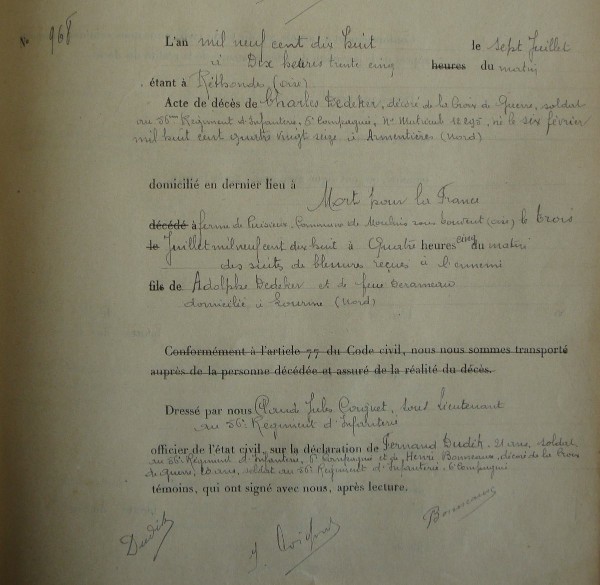 No 968
L'an mil neuf cent dix huit le sept Juillet
à Dix heures trente cinq heures du matin
étant à Rethondes (oise)
Acte de décès de Charles Dedeker, décoré de la Croix de Guerre, soldat
au 56me Régiment d'Infanterie, 6e Compagnie, No Matricule 12295, né le six février
mil huit cent quatre vingt seize à Armentières (Nord)
domicilié en dernier lieu à
Mort pour la France
décédé à ferme de Puisieux, Commune de Moulin sous Touvent (oise), le trois
le Juillet mil neuf cent dix huit à Quatre heures cinq du matin
des suites de blessures reçues à l'ennemi
fils de Adolphe Dedeker et de feue
domicilié à (Nord)
Conformément à l'article 77 du Code civil, nous nous sommes transporté
auprès de la personne décédée et assuré de la réalité du décès.
Dressé par nous Claude Jules sous Lieutenant
au 56e Régiment d'Infanterie
officier de l'état civil, sur la déclaration de Fernand Dudik, 21 ans, soldat
au 56e Régiment d'Infanterie, 6e Compagnie et de Henri Bonneau, décoré de la Croix
de Guerre, ans, soldat au 56e Régiment d'Infanterie, 6e Compagnie
témoins, qui ont signé avec nous, après lecture.
Dudik
Bonneau